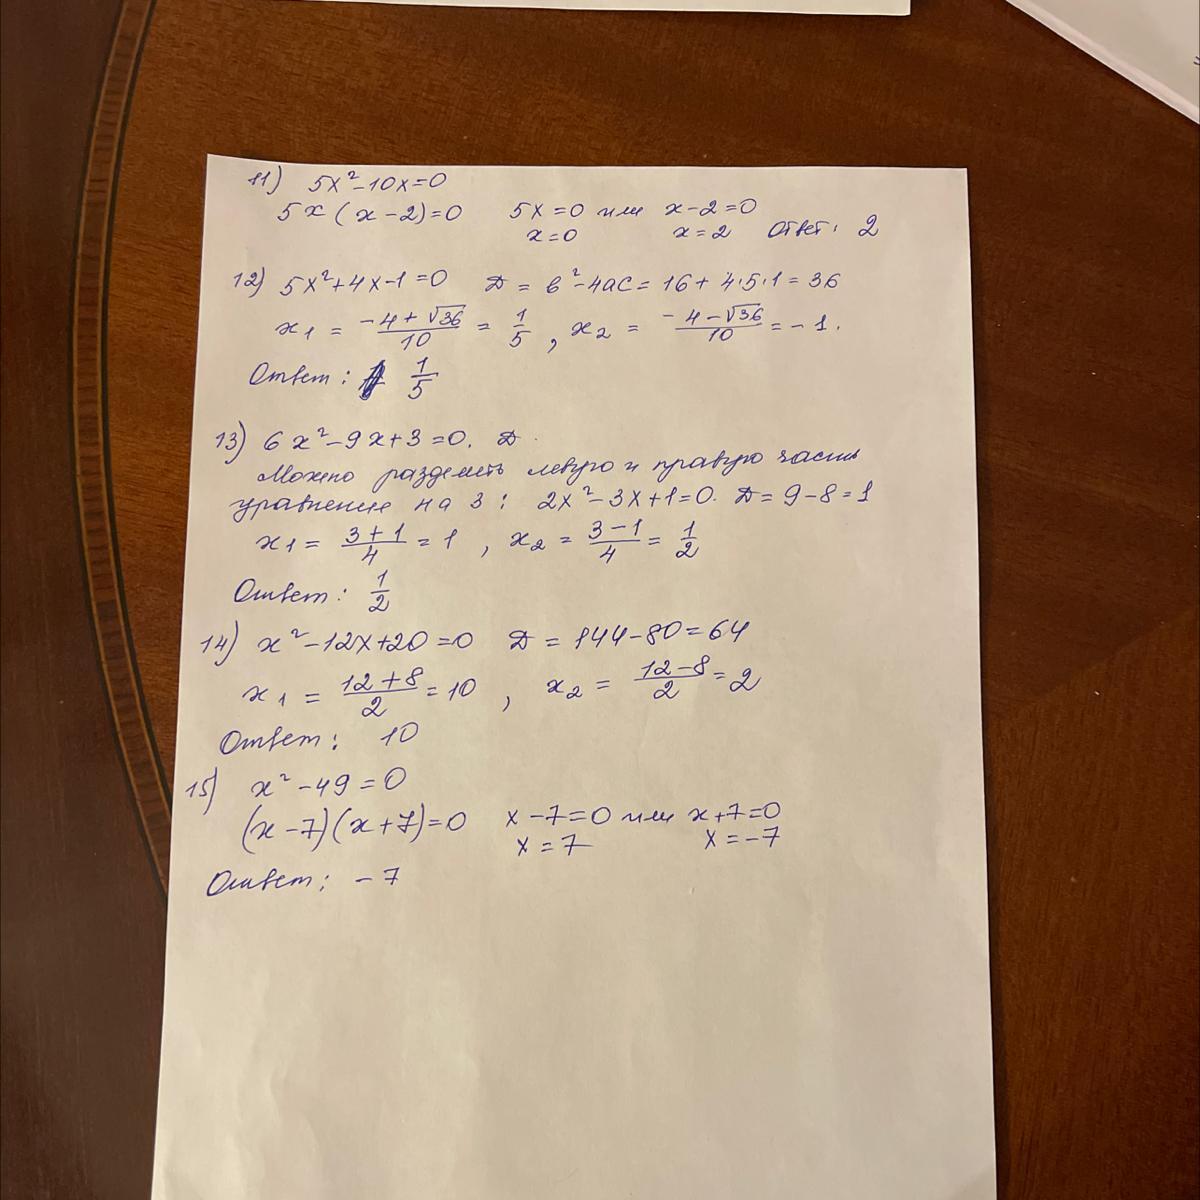 11) 5x²-10x=0
5x(x-2)=0 5x=0 или x-2=0
x=0 x=2 Ответ: 2
12) 5x²+4x-1=0 D = b²-4ac = 16+4·5·1=36
x₁ = (-4+√36)/10 = 1/5, x₂ = (-4-√36)/10 = -1.
Ответ: 1/5
13) 6x²-9x+3=0. D
Можно разделить левую и правую часть
уравнение на 3: 2x²-3x+1=0. D=9-8=1
x₁ = (3+1)/4 = 1, x₂ = (3-1)/4 = 1/2
Ответ: 1/2
14) x²-12x+20=0 D = 144-80=64
x₁ = (12+8)/2 = 10, x₂ = (12-8)/2 = 2
Ответ: 10
15) x²-49=0
(x-7)(x+7)=0 x-7=0 или x+7=0
x=7 x=-7
Ответ: -7